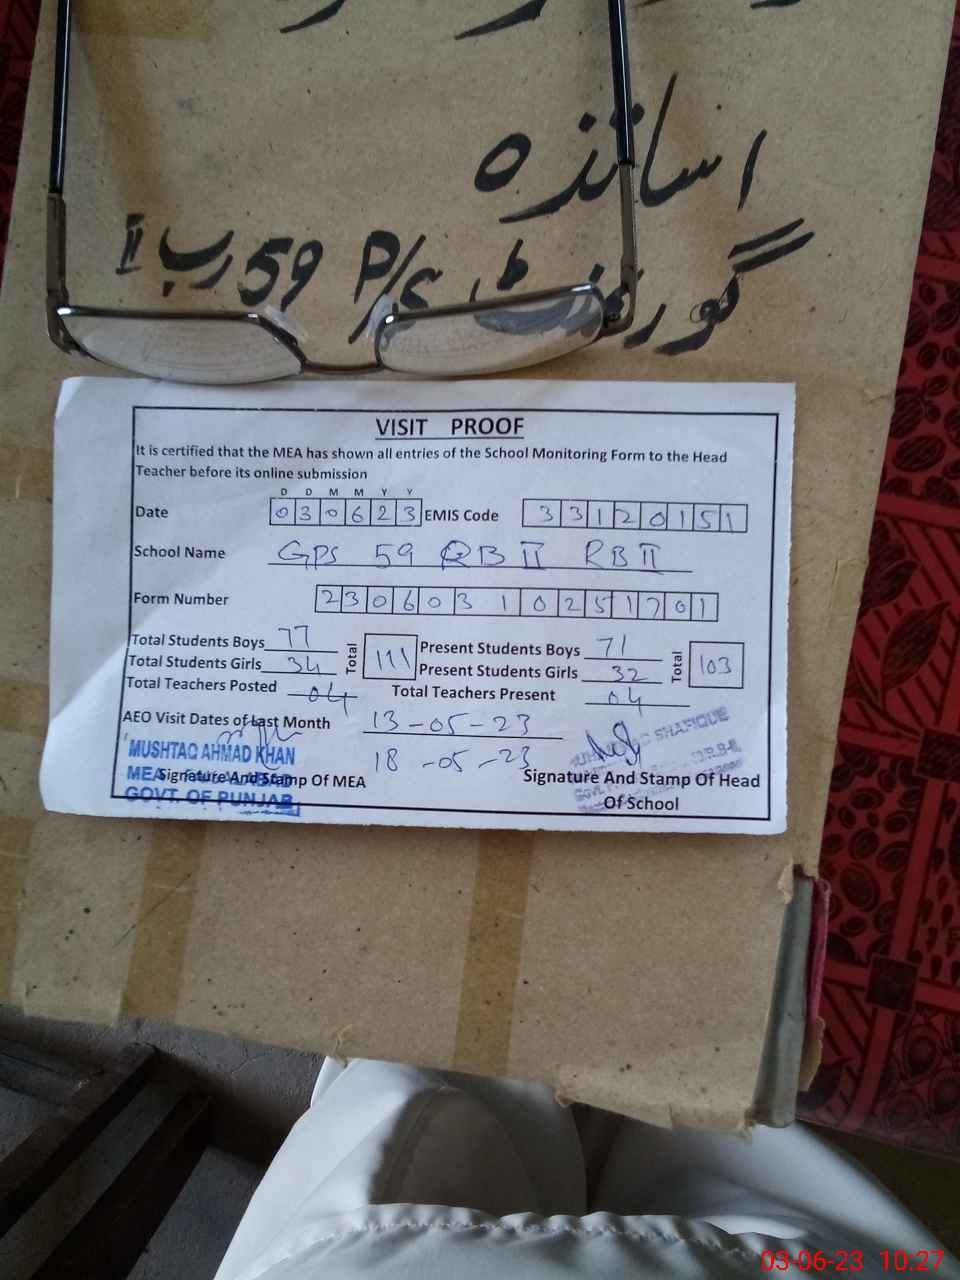 اساتذہ
گورنمنٹ P/S 59 رب II
VISIT PROOF
It is certified that the MEA has shown all entries of the School Monitoring Form to the Head
Teacher before its online submission
D D M M Y Y
Date 0 3 0 6 2 3 EMIS Code 3 3 1 2 0 1 5 1
School Name GPS 59 RB II RB II
Form Number 2 3 0 6 0 3 1 0 2 5 1 7 0 1
Total Students Boys 77 Total 111 Present Students Boys 71 Total 103
Total Students Girls 34 Present Students Girls 32
Total Teachers Posted 04 Total Teachers Present 04
AEO Visit Dates of Last Month 13-05-23
18-05-23
MUSHTAQ AHMAD KHAN
MEA
GOVT. OF PUNJAB
Signature And Stamp Of MEA
SHAFIQUE
Signature And Stamp Of Head
Of School
03-06-23 10:27